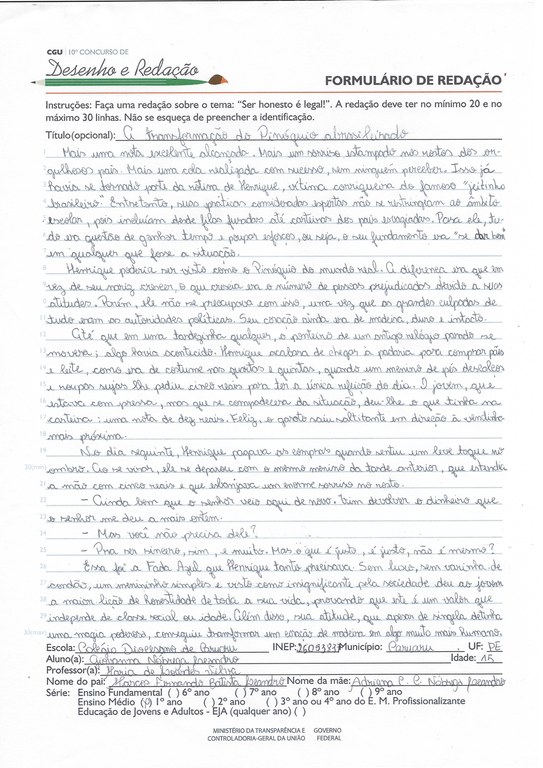 CGU | 10º CONCURSO DE
Desenho e Redação
FORMULÁRIO DE REDAÇÃO
Instruções: Faça uma redação sobre o tema: "Ser honesto é legal!". A redação deve ter no mínimo 20 e no
máximo 30 linhas. Não se esqueça de preencher a identificação.
Título(opcional): A transformação do Pinóquio abrasileirado
Mais uma nota excelente alcançada. Mais um sorriso estampado nos rostos dos or-
gulhosos pais. Mais uma cola realizada com sucesso, sem ninguém perceber. Isso já
havia se tornado parte da rotina de Henrique, vítima corriqueira do famoso "jeitinho
brasileiro". Entretanto, suas práticas consideradas espertas não se restringiam ao âmbito
escolar, pois incluíam desde filas furadas até carteiras dos pais esvaziadas. Para ele, tu-
do era questão de ganhar tempo e poupar esforços, ou seja, o seu fundamento era "se dar bem"
em qualquer que fosse a situação.
Henrique poderia ser visto como o Pinóquio do mundo real. A diferença era que em
vez de seu nariz crescer, o que crescia era o número de pessoas prejudicadas devido a suas
atitudes. Porém, ele não se preocupava com isso, uma vez que os grandes culpados de
tudo eram as autoridades políticas. Seu coração ainda era de madeira, duro e intacto.
Até que em uma tardezinha qualquer, o ponteiro de um antigo relógio parado se
movera; algo havia acontecido. Henrique acabara de chegar à padaria para comprar pães
e leite, como era de costume nas quartas e quintas, quando um menino de pés descalços
e roupas sujas lhe pediu cinco reais para ter a única refeição do dia. O jovem, que
estava com pressa, mas que se compadecera da situação, deu-lhe o que tinha na
carteira: uma nota de dez reais. Feliz, o garoto saiu saltitante em direção à vendinha
mais próxima.
No dia seguinte, Henrique pagava as compras quando sentiu um leve toque no
ombro. Ao se virar, ele se deparou com o mesmo menino da tarde anterior, que estendia
a mão com cinco reais e que esbanjava um enorme sorriso no rosto.
- Ainda bem que o senhor veio aqui de novo. Vim devolver o dinheiro que
o senhor me deu a mais ontem.
- Mas você não precisa dele?
- Pra ser sincero, sim, e muito. Mas o que é justo, é justo, não é mesmo?
Essa foi a Fada Azul que Henrique tanto precisava. Sem luxo, sem varinha de
condão, um menininho simples e visto como insignificante pela sociedade deu ao jovem
a maior lição de honestidade de toda a sua vida, provando que este é um valor que
independe de classe social ou idade. Além disso, sua atitude, que apesar de singela detinha
uma magia poderosa, conseguiu transformar um coração de madeira em algo muito mais humano.
Escola: Colégio Diocesano de Caruaru INEP: Município: Caruaru. UF: PE
Aluno(a): Giovanna Nóbrega Leandro Idade: 15
Professor(a): Maria de Silva
Nome do pai: Marcos Fernando Batista Leandro Nome da mãe: Adriana C. C. Nóbrega Leandro
Série: Ensino Fundamental ( ) 6º ano ( ) 7º ano ( ) 8º ano ( ) 9º ano
Ensino Médio (x) 1º ano ( ) 2º ano ( ) 3º ano ou 4º ano do E. M. Profissionalizante
Educação de Jovens e Adultos - EJA (qualquer ano) ( )
MINISTÉRIO DA TRANSPARÊNCIA E GOVERNO
CONTROLADORIA-GERAL DA UNIÃO FEDERAL